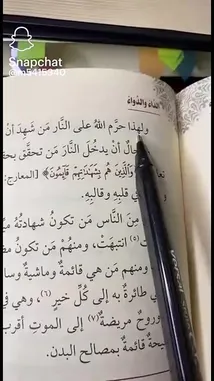 Snapchat
@m5415340
الداء والدواء
ولهذا حرَّم اللهُ على النَّار مَن شَهِدَ أنْ
أنْ يدخُلَ النَّارَ مَن تحقَّق بحق
﴿وَالَّذِينَ هُم بِشَهَادَاتِهِمْ قَائِمُونَ﴾ [المعارج:
في قلبِه وقالبِه.
مِنَ النَّاس مَن تكونُ شهادتُهُ
(٥) انتبهَتْ، ومنهُمْ مَن تكونُ
ومنهم مَن هي قائمةٌ وماشيةٌ
طائرةٌ به إلى كُلِّ خيرٍ (٦)، وهي في
وروحٌ مريضةٌ (٧) إلى الموتِ أقربُ
قائمةٌ بمصالحِ البدن.